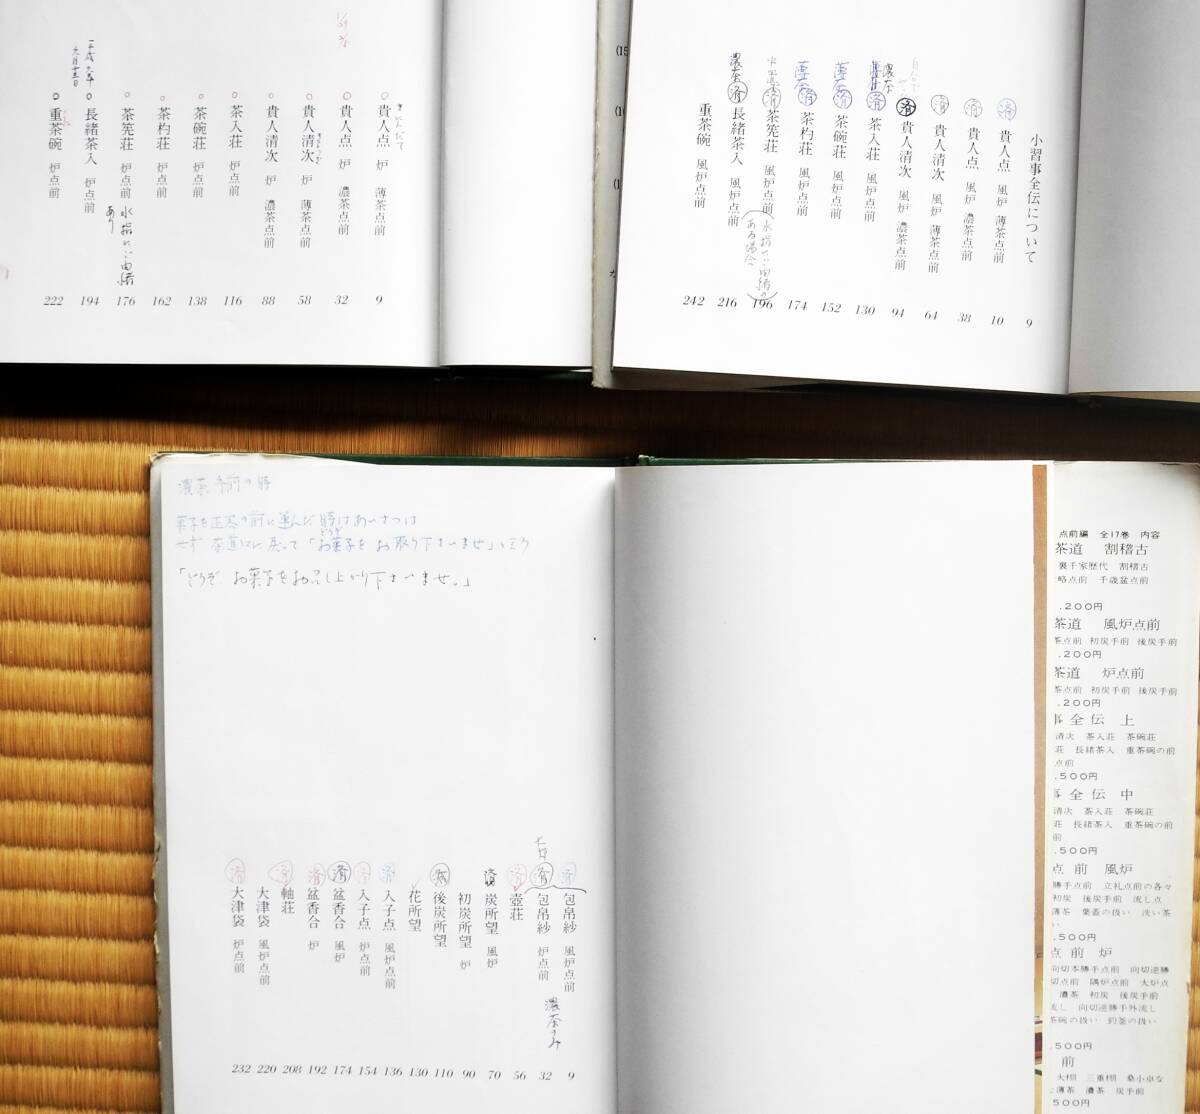 小習事全伝について 9
済 貴人点 風炉 薄茶点前 10
済 貴人点 風炉 濃茶点前 38
済 貴人清次 風炉 薄茶点前 64
済 貴人清次 風炉 濃茶点前 94
濃茶
済 茶入荘 風炉点前 130
薄茶 済 茶碗荘 風炉点前 152
薄茶 済 茶杓荘 風炉点前 174
済 茶筅荘 風炉点前 196
(水指にご由緒の
ある場合)
濃茶 済 長緒茶入 風炉点前 216
重茶碗 風炉点前 242
きにんだて
貴人点 炉 薄茶点前 9
貴人点 炉 濃茶点前 32
貴人清次 炉 薄茶点前 58
貴人清次 炉 濃茶点前 88
茶入荘 炉点前 116
茶碗荘 炉点前 138
茶杓荘 炉点前 162
茶筅荘 炉点前 176
水指にご由緒
あり
長緒茶入 炉点前 194
重茶碗 炉点前 222
濃茶手前の時
菓子を正客の前に運んだ時はあいさつは
せず 茶道口に戻って「お菓子をお取り下さいませ」と云ク
どうぞ
「どうぞ お菓子をおめし上がり下さいませ。」
済 包帛紗 風炉点前 9
済 包帛紗 炉点前 32
濃茶のみ
済 壺荘 56
済 炭所望 風炉 70
初炭所望 炉 90
済 後炭所望 110
花所望 130
済 入子点 風炉点前 136
済 入子点 炉点前 154
済 盆香合 風炉 174
済 盆香合 炉 192
済 軸荘 208
大津袋 風炉点前 220
済 大津袋 炉点前 232
点前編 全17巻 内容
茶道 割稽古
裏千家歴代 割稽古
略点前 千歳盆点前
.200円
茶道 風炉点前
茶点前 初炭手前 後炭手前
.200円
茶道 炉点前
茶点前 初炭手前 後炭手前
.200円
事全伝 上
清次 茶入荘 茶碗荘
荘 長緒茶入 重茶碗の前
点前
.500円
事全伝 中
清次 茶入荘 茶碗荘
荘 長緒茶入 重茶碗の前
前
.500円
点前 風炉
勝手点前 立礼点前の各々
初炭 後炭手前 流し点
薄茶 葉蓋の扱い 洗い茶
い
.500円
点前 炉
向切本勝手点前 向切逆勝
切点前 隅炉点前 大炉点
濃茶 初炭 後炭手前
流し 向切逆勝手外流し
茶碗の扱い 釣釜の扱い
.500円
前
大棚 三重棚 桑小卓な
に薄茶 濃茶 炭手前
500円